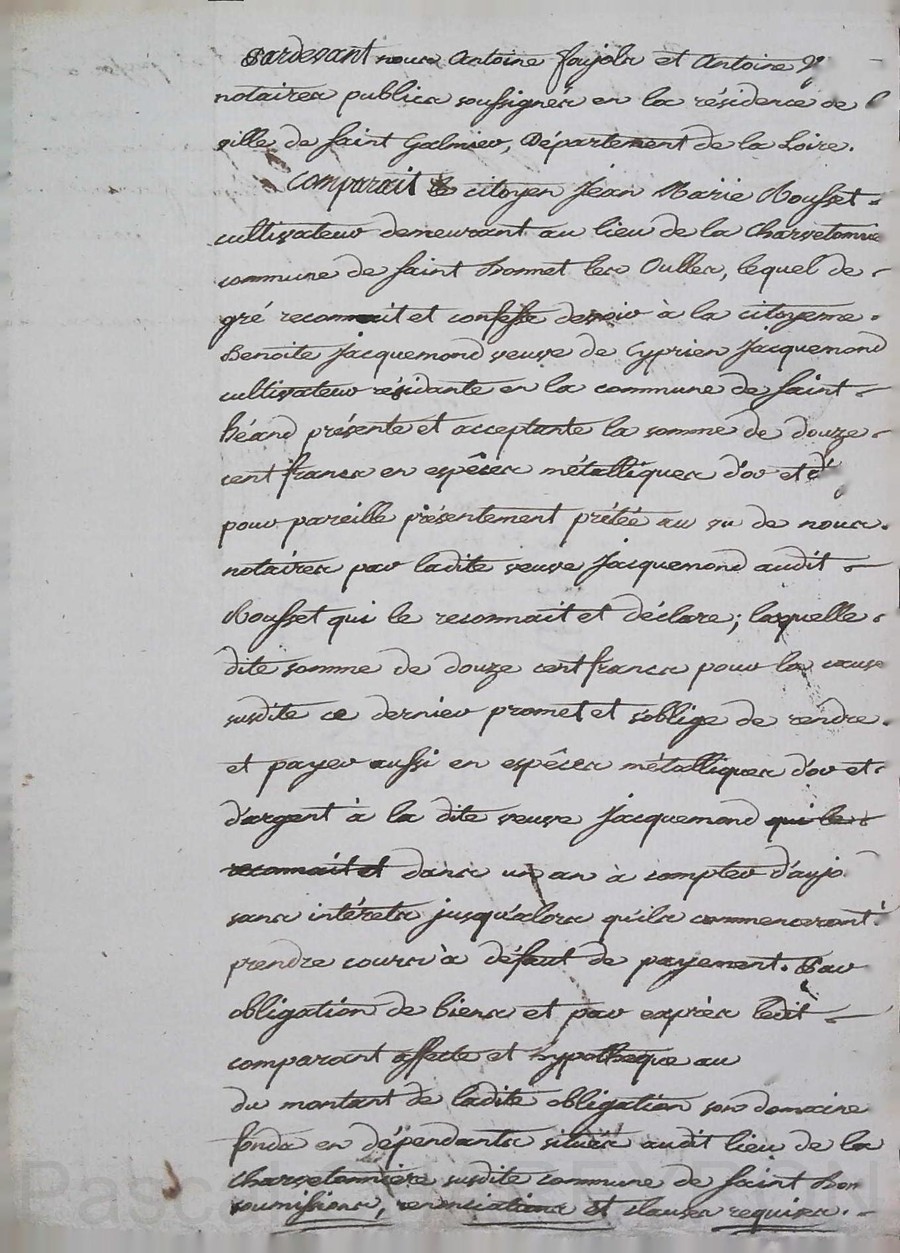 Pardevant nous Antoine Fayolle et Antoine
notaires publics soussignés en la résidence de l
ville de Saint Galmier, Département de la Loire.
Comparait le citoyen Jean Marie Rousset
cultivateur demeurant au lieu de la Charvetonnie
commune de Saint Bonnet les Oulles, lequel de
gré reconnait et confesse devoir à la citoyenne
Benoite Jacquemond veuve de Cyprien Jacquemond
cultivateur résidante en la commune de Saint
héand présente et acceptante la somme de douze
cent francs en espêces métalliques d'or et d'
pour pareille présentement prétée au vu de nous
notaires par ladite veuve Jacquemond audit
Rousset qui le reconnait et déclare; laquelle
dite somme de douze cent francs pour la cause
susdite ce dernier promet et s'oblige de rendre
et payer aussi en espêces métalliques d'or et
d'argent à la dite veuve Jacquemond qui le
reconnait et dans un an à compter d'aujo
sans intérets jusqu'alors qu'ils commenceront
prendre cours à défaut de payement. Par
obligation de biens et par exprès ledit
comparant affecte et hypotheque au
du montant de ladite obligation son domaine
fonds en dépendants situés audit lieu de la
Charvetonnière susdite commune de Saint Bon
soumissions, renonciations et clauses requises.
Pascal EYRON